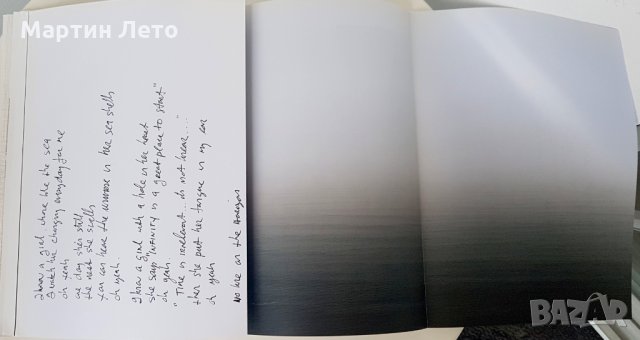 Мартин Лето
I know a girl whose like the sea
I watch her changing everyday for me
oh yeah
one day she's still
the next she swells
You can hear the universe in her sea shells
oh yeah.
I know a girl with a hole in her heart
she said "INFINITY is a great place to start"
oh yeah.
"Time is irrelevant.. not linear..."
then she put her tongue in my ear
oh yeah
NO line on the Horizon
BAZAR